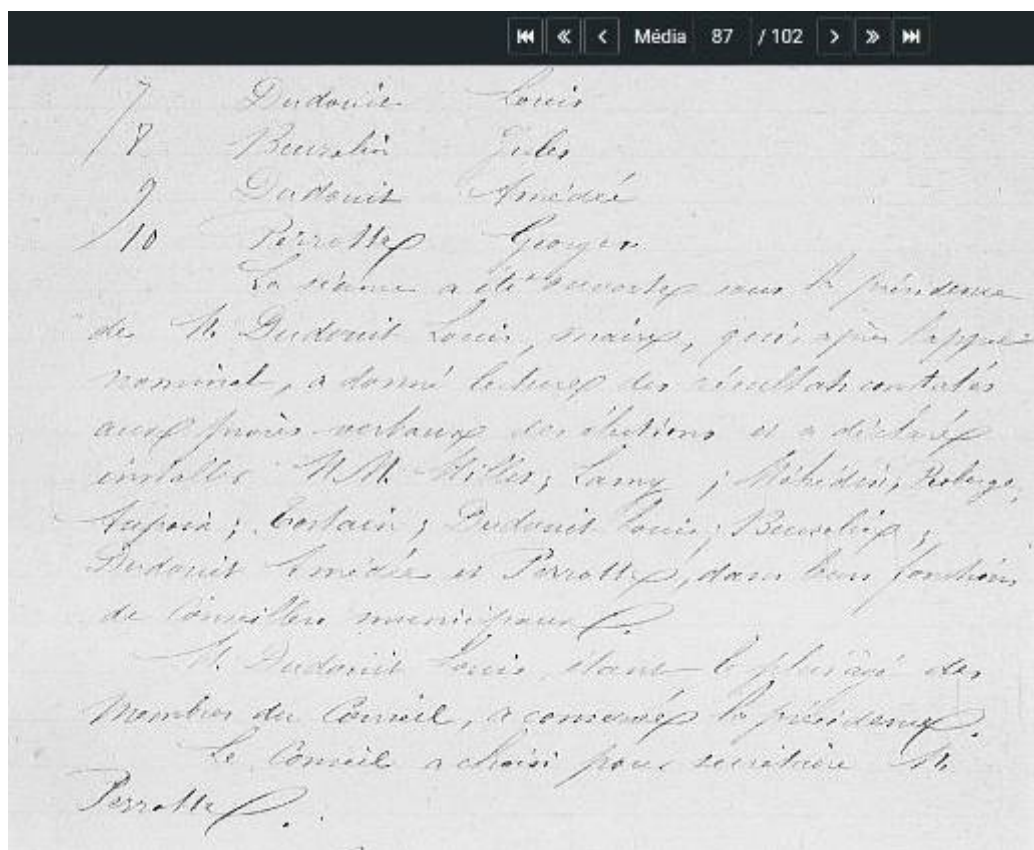 Média 87 / 102
7 Dudouit Louis
8 Beuzelin Jules
9 Dudouit Amédée
10 Perrotte Georges
La séance a été ouverte sous la présidence
de M. Dudouit Louis, maire, qui, après l'appel
nominal, a donné lecture des résultats constatés
aux procès-verbaux des élections et a déclaré
installer M.M. Miller; Lamy; Méhédin; Roberge;
Dudouit Louis; Beuzelin;
Dudouit Amédée et Perrotte, dans leurs fonctions
de Conseillers municipaux.
M. Dudouit Louis, étant le plus âgé des
Membres du Conseil, a conservé la présidence.
Le Conseil a choisi pour secrétaire M.
Perrotte.